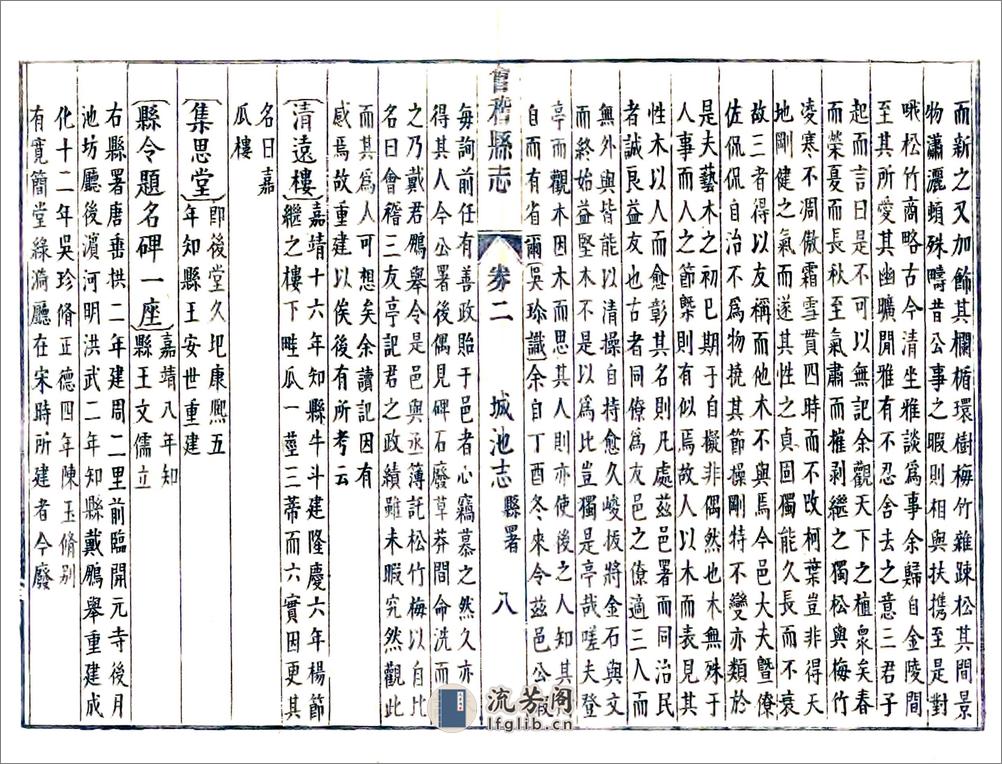 而新之又加飾其欄楯環樹梅竹雜踈松其間景
物瀟灑蝢殊疇昔公事之暇則相與扶携至是對
哦松竹商略古今清坐雅談爲事余歸自金陵間
至其所愛其幽曠閒雅有不忍舍去之意三君子
起而言曰是不可以無記余觀天下之植衆矣春
而榮憂而長秋至氣肅而摧剥繼之獨松與梅竹
凌寒不凋傲霜雪貫四時而不改柯葉豈非得天
地剛健之氣而遂其性之貞固獨能久長而不衰
故三者得以友稱而他木不與焉今邑大夫曁僚
佐侃侃自治不爲物撓其節操剛特不變亦類於
是夫藝木之初已期于自擬非偶然也木無殊于
人事而人之節槩則有似焉故人以木而表見其
性木以人而愈彰其名則凡處茲邑署而同治民
者誠良益友也古者同僚爲友邑之僚適三人而
無外與皆能以清操自持愈久峻拔將金石與文
而終始益堅木不是以爲比豈獨是亭哉嗟夫登
亭而觀木因木而思其人則亦使後之人知其
自而有省爾吳珍識余自丁酉冬來令茲邑公暇
會稽縣志 卷二 城池志 縣署 八
每詢前任有善政貽于邑者心竊慕之然久亦
得其人今公署後偶見碑石廢草莽間命洗而
之乃戴君鵬舉令是邑與丞簿託松竹梅以自比
名曰會稽三友亭記君之政績雖未暇究然觀此
而其爲人可想矣余讀記因有
感焉故重建以俟後有所考云
清遠樓嘉靖十六年知縣牛斗建隆慶六年楊節
繼之樓下畦瓜一莖三蒂而六實因更其
名曰嘉
瓜樓
集思堂即後堂久圯康熙五
年知縣王安世重建
縣令題名碑一座嘉靖八年知
縣王文儒立
右縣署唐埀拱二年建周二里前臨開元寺後月
池坊廳後濵河明洪武二年知縣戴鵬舉重建成
化十二年吳珍脩正德四年陳玉脩别
有寛簡堂緑漪廳在宋時所建者今廢
流芳阁
lfglib.cn